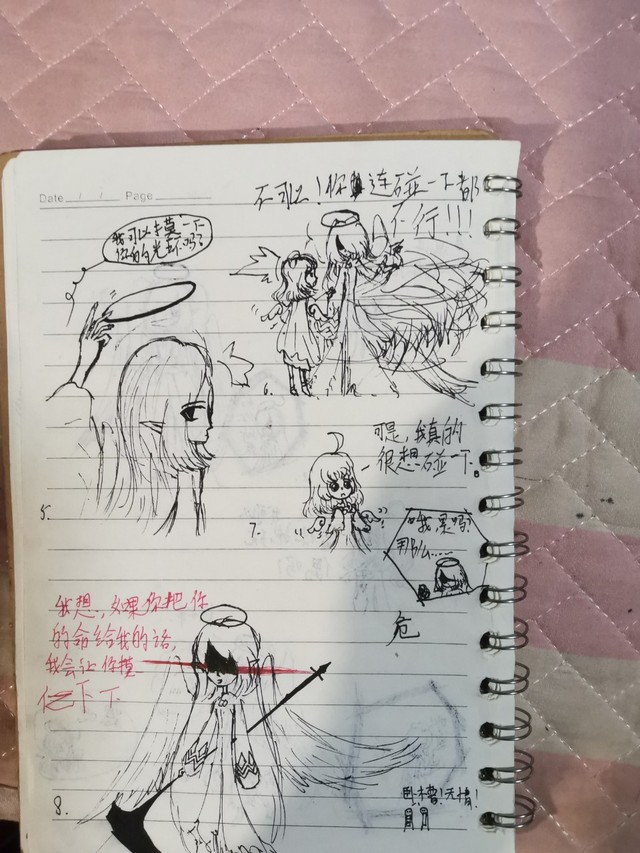 Date / / Page
不可以！你连碰一下都
不行!!!
我可以摸一下
你的光圈吗?
6.
可是,我真的
很想碰一下。
5.
7.
哦,是吗?
那么……
危
我想,如果你把你
的命给我的话,
我会让你摸
一下下
8.
卧槽!无情!